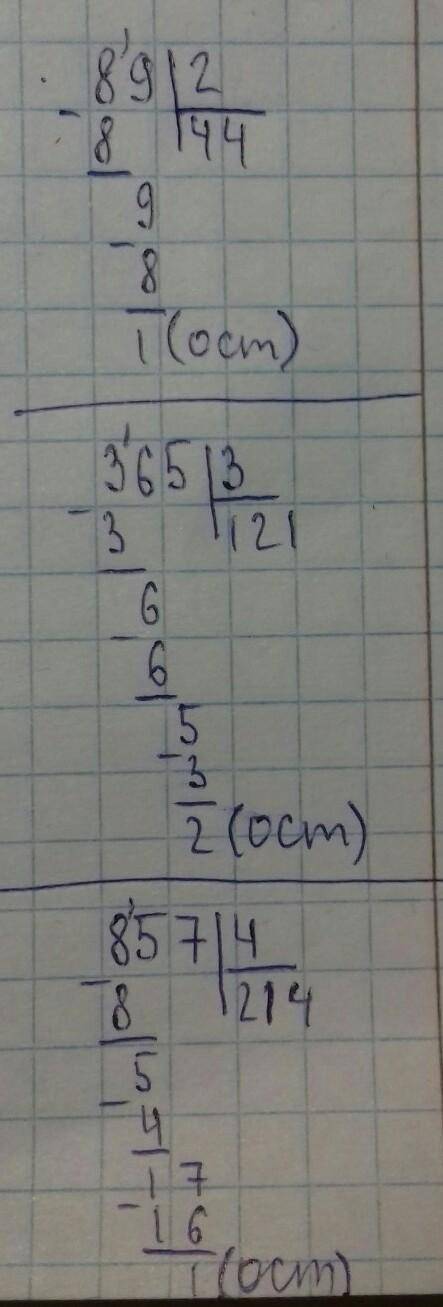 89 2
8 44
9
8
1 (ост)
365 3
3 121
6
6
5
3
2 (ост)
857 4
8 214
5
4
17
16
1 (ост)